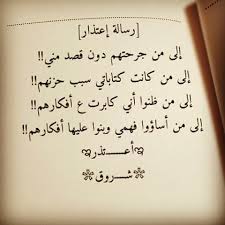 [رسالة إعتذار]
إلى من جرحتهم دون قصد مني!!
إلى من كانت كتاباتي سبب حزنهم!!
إلى من ظنوا أني كابرت ع أفكارهم!!
إلى من أساؤوا فهمي وبنوا عليها أفكارهم!!
أعـــتذر
شـــروق